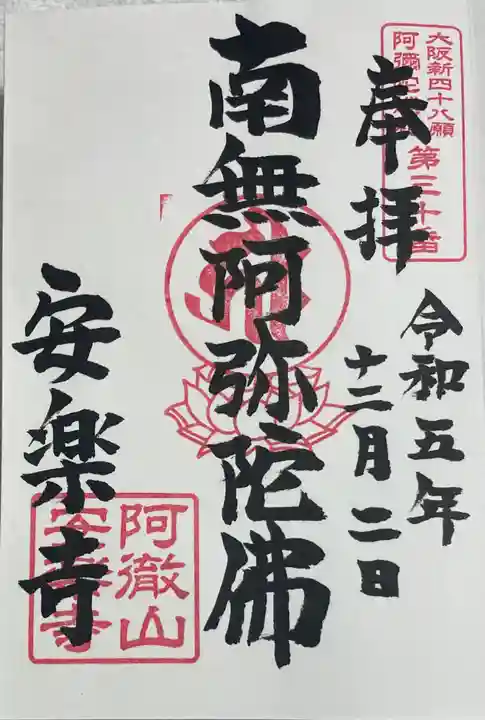 大阪新四十八願
阿彌陀
第三十番
奉拝
令和五年
十二月二日
南無阿弥陀佛
安楽寺
阿徹山
安楽寺